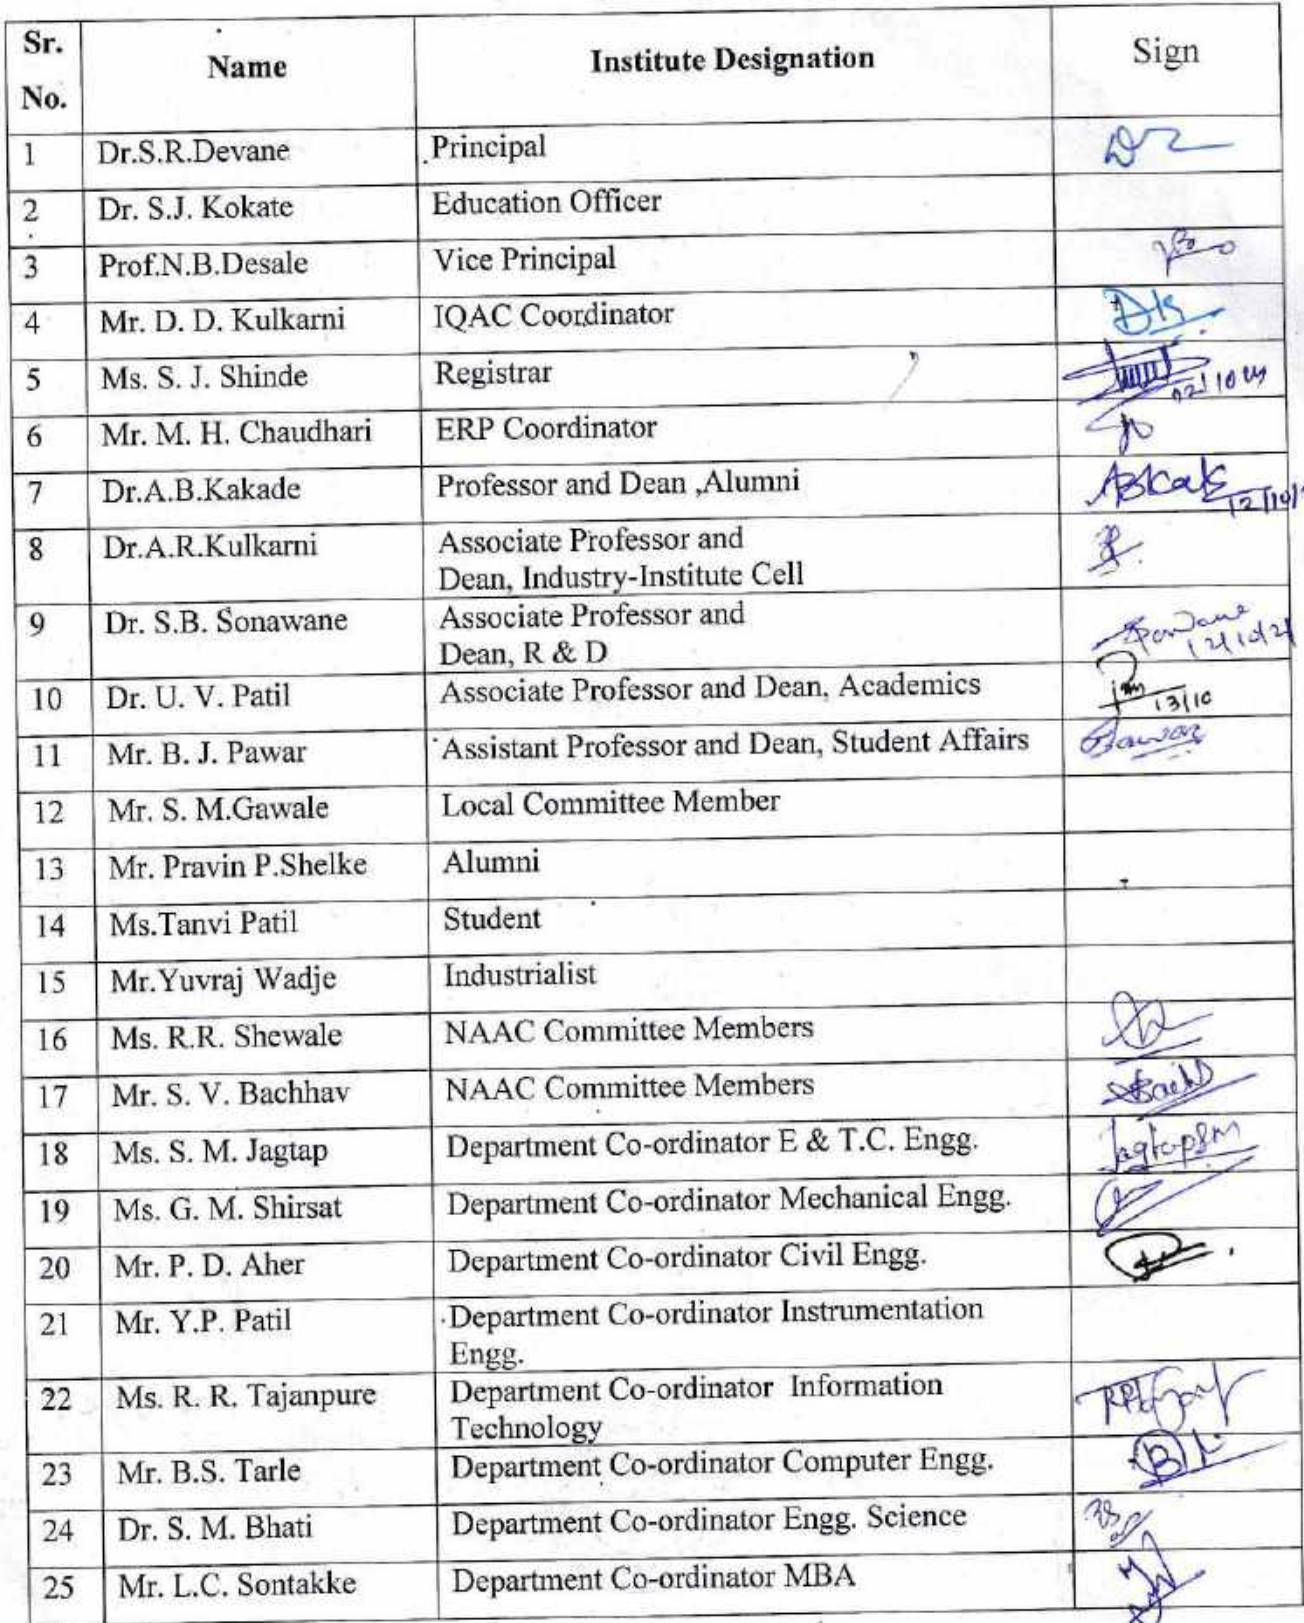 Sr. No. Name Institute Designation Sign
1 Dr.S.R.Devane Principal
2 Dr. S.J. Kokate Education Officer
3 Prof.N.B.Desale Vice Principal
4 Mr. D. D. Kulkarni IQAC Coordinator
5 Ms. S. J. Shinde Registrar
6 Mr. M. H. Chaudhari ERP Coordinator
7 Dr.A.B.Kakade Professor and Dean ,Alumni
8 Dr.A.R.Kulkarni Associate Professor and
Dean, Industry-Institute Cell
9 Dr. S.B. Sonawane Associate Professor and
Dean, R & D
10 Dr. U. V. Patil Associate Professor and Dean, Academics 13/10
11 Mr. B. J. Pawar Assistant Professor and Dean, Student Affairs Bawar
12 Mr. S. M.Gawale Local Committee Member
13 Mr. Pravin P.Shelke Alumni
14 Ms.Tanvi Patil Student
15 Mr.Yuvraj Wadje Industrialist
16 Ms. R.R. Shewale NAAC Committee Members
17 Mr. S. V. Bachhav NAAC Committee Members
18 Ms. S. M. Jagtap Department Co-ordinator E & T.C. Engg. JagtapSM
19 Ms. G. M. Shirsat Department Co-ordinator Mechanical Engg.
20 Mr. P. D. Aher Department Co-ordinator Civil Engg.
21 Mr. Y.P. Patil Department Co-ordinator Instrumentation
Engg.
22 Ms. R. R. Tajanpure Department Co-ordinator Information
Technology
23 Mr. B.S. Tarle Department Co-ordinator Computer Engg.
24 Dr. S. M. Bhati Department Co-ordinator Engg. Science
25 Mr. L.C. Sontakke Department Co-ordinator MBA